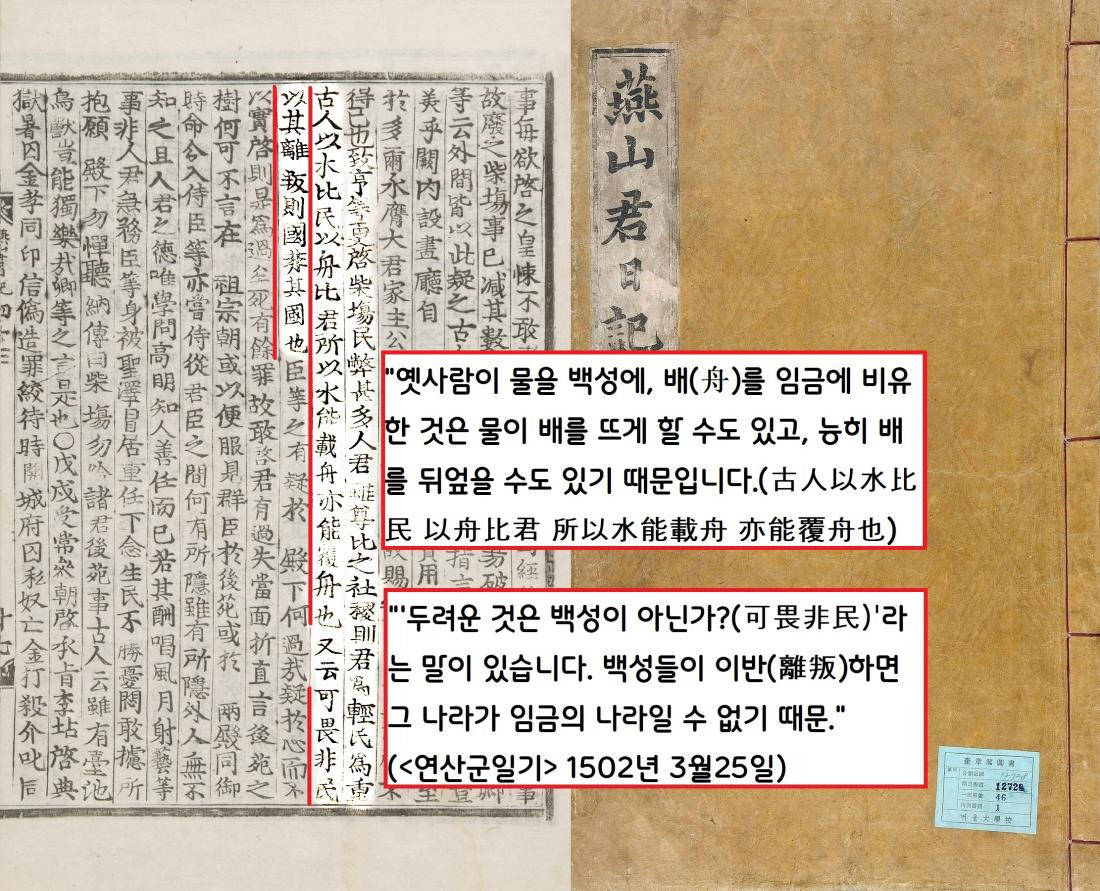 事每欲啓之皇悚不敢
故廢之柴場事已减其數
等云外間皆以此疑之古
美乎闕內設畫廳自
於多爾永膺大君家主公
得已也致亨等更啓柴場民弊甚多人君雖尊比之社稷則君爲輕民爲重
古人以水比民以舟比君所以水能載舟亦能覆舟也又云可畏非民
以其離叛則國非其國也臣等之有疑於 殿下何過哉疑於心而不
以實啓則是爲過至死有餘罪故敢啓君有過失當面折直言後苑之
樹何可不言在 祖宗朝或以便服見群臣於後苑或於 兩殿同御
時命令入侍臣等亦嘗侍從君臣之間何有所隱雖有所隱外人無不
知之且人君之德唯學問高明知人善任而已若其酬唱風月射藝等
事非人君急務臣等身被聖澤冒居重任下念生民不勝憂悶敢攄所
抱願 殿下勿憚聽納傳曰柴場勿以諸君後苑事古人云雖有臺池
鳥獸豈能獨樂哉卿等之言是也○戊戌受常參朝啓承旨李坫啓典
獄暑囚金孝同印信僞造罪絞待時開城府囚私奴亡金打殺介叱同
燕山君日記
"옛사람이 물을 백성에, 배(舟)를 임금에 비유
한 것은 물이 배를 뜨게 할 수도 있고, 능히 배
를 뒤엎을 수도 있기 때문입니다.(古人以水比
民 以舟比君 所以水能載舟 亦能覆舟也)
"'두려운 것은 백성이 아닌가?(可畏非民)'라
는 말이 있습니다. 백성들이 이반(離叛)하면
그 나라가 임금의 나라일 수 없기 때문."
(<연산군일기> 1502년 3월25일)
奎章閣圖書
12728
46
1
서울大學校